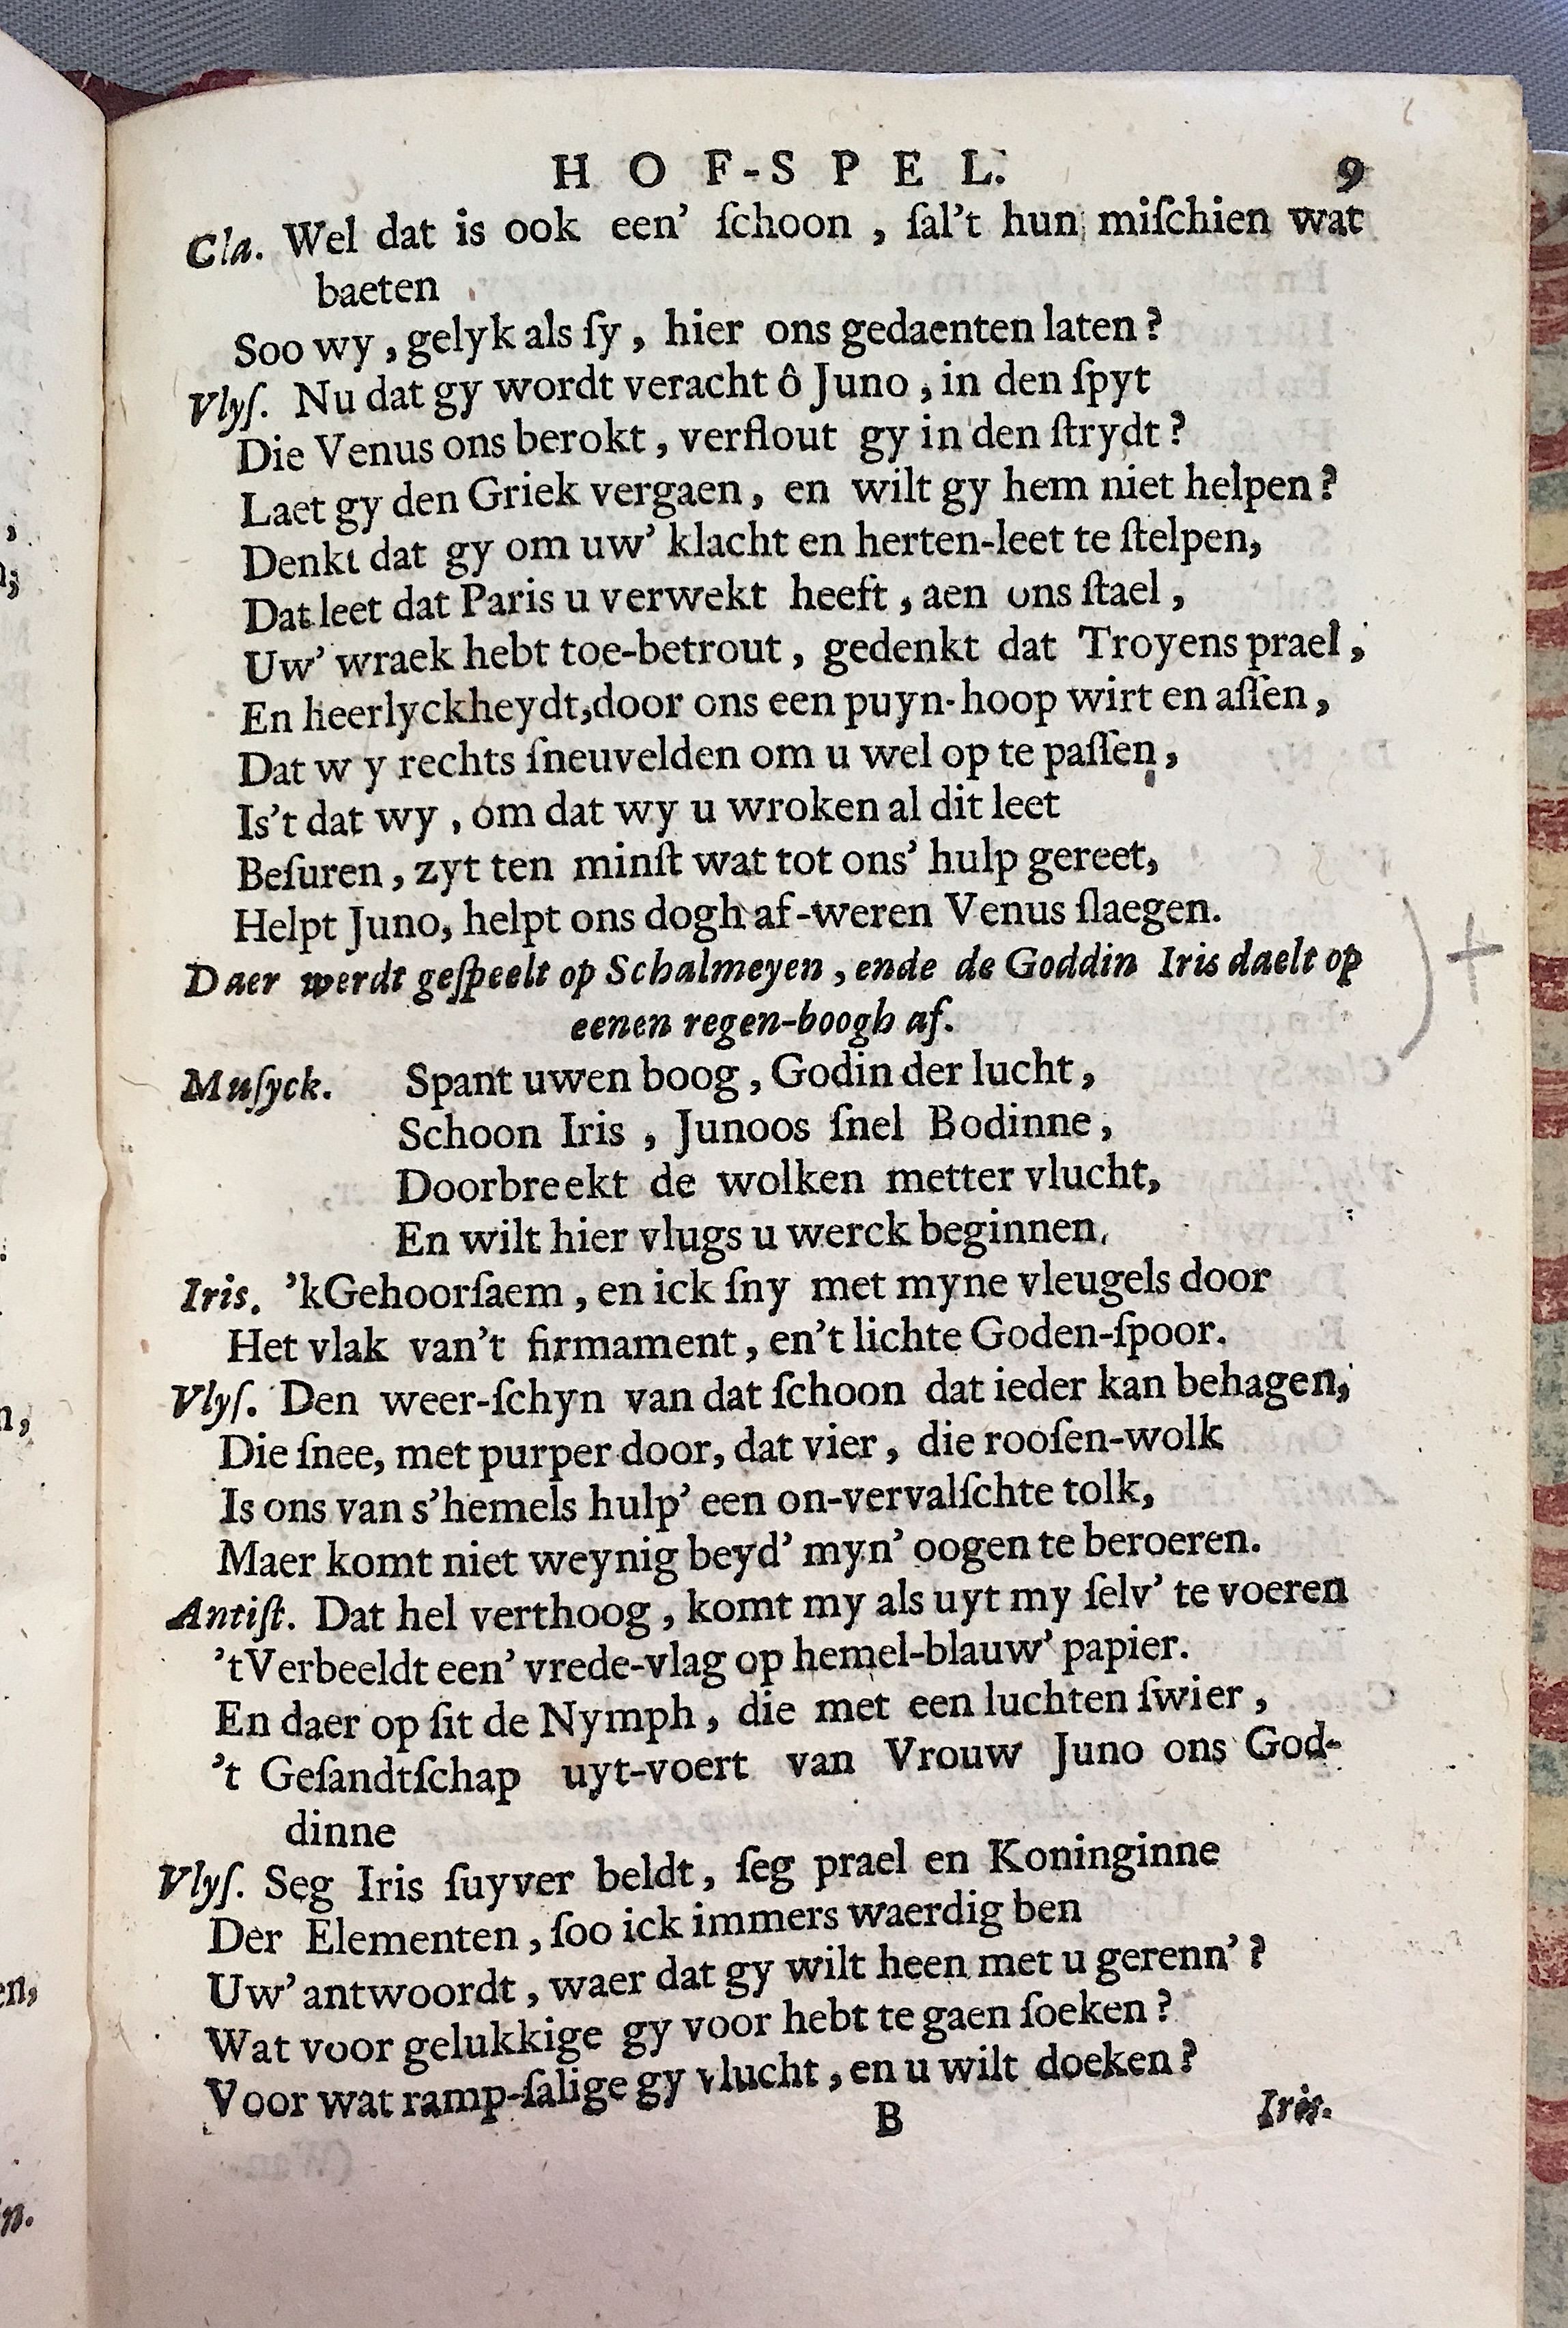 HOF-SPEL. 9
Cla. Wel dat is ook een' ſchoon , ſal't hun miſchien wat
baeten
Soo wy , gelyk als ſy , hier ons gedaenten laten ?
Vlyſ. Nu dat gy wordt veracht ô Juno , in den ſpyt
Die Venus ons berokt , verflout gy in den ſtrydt ?
Laet gy den Griek vergaen , en wilt gy hem niet helpen ?
Denkt dat gy om uw' klacht en herten-leet te ſtelpen,
Dat leet dat Paris u verwekt heeft , aen ons ſtael ,
Uw' wraek hebt toe-betrout , gedenkt dat Troyens prael ,
En heerlyckheydt,door ons een puyn-hoop wirt en aſſen ,
Dat w y rechts ſneuvelden om u wel op te paſſen ,
Is't dat wy , om dat wy u wroken al dit leet
Beſuren , zyt ten minſt wat tot ons' hulp gereet,
Helpt Juno, helpt ons dogh af-weren Venus ſlaegen.
Daer werdt geſpeelt op Schalmeyen , ende de Goddin Iris daelt op
eenen regen-boogh af.
Muſyck. Spant uwen boog , Godin der lucht ,
Schoon Iris , Junoos ſnel Bodinne ,
Doorbreekt de wolken metter vlucht,
En wilt hier vlugs u werck beginnen.
Iris. 'kGehoorſaem , en ick ſny met myne vleugels door
Het vlak van't firmament , en't lichte Goden-ſpoor.
Vlyſ. Den weer-ſchyn van dat ſchoon dat ieder kan behagen,
Die ſnee, met purper door, dat vier , die rooſen-wolk
Is ons van s'hemels hulp' een on-vervalſchte tolk,
Maer komt niet weynig beyd' myn' oogen te beroeren.
Antiſt. Dat hel verthoog , komt my als uyt my ſelv' te voeren
'tVerbeeldt een' vrede-vlag op hemel-blauw' papier.
En daer op ſit de Nymph , die met een luchten ſwier ,
't Geſandtſchap uyt-voert van Vrouw Juno ons God-
dinne
Vlyſ. Seg Iris ſuyver beldt , ſeg prael en Koninginne
Der Elementen , ſoo ick immers waerdig ben
Uw' antwoordt , waer dat gy wilt heen met u gerenn' ?
Wat voor gelukkige gy voor hebt te gaen ſoeken ?
Voor wat ramp-ſalige gy vlucht , en u wilt doeken ?
B Iris.